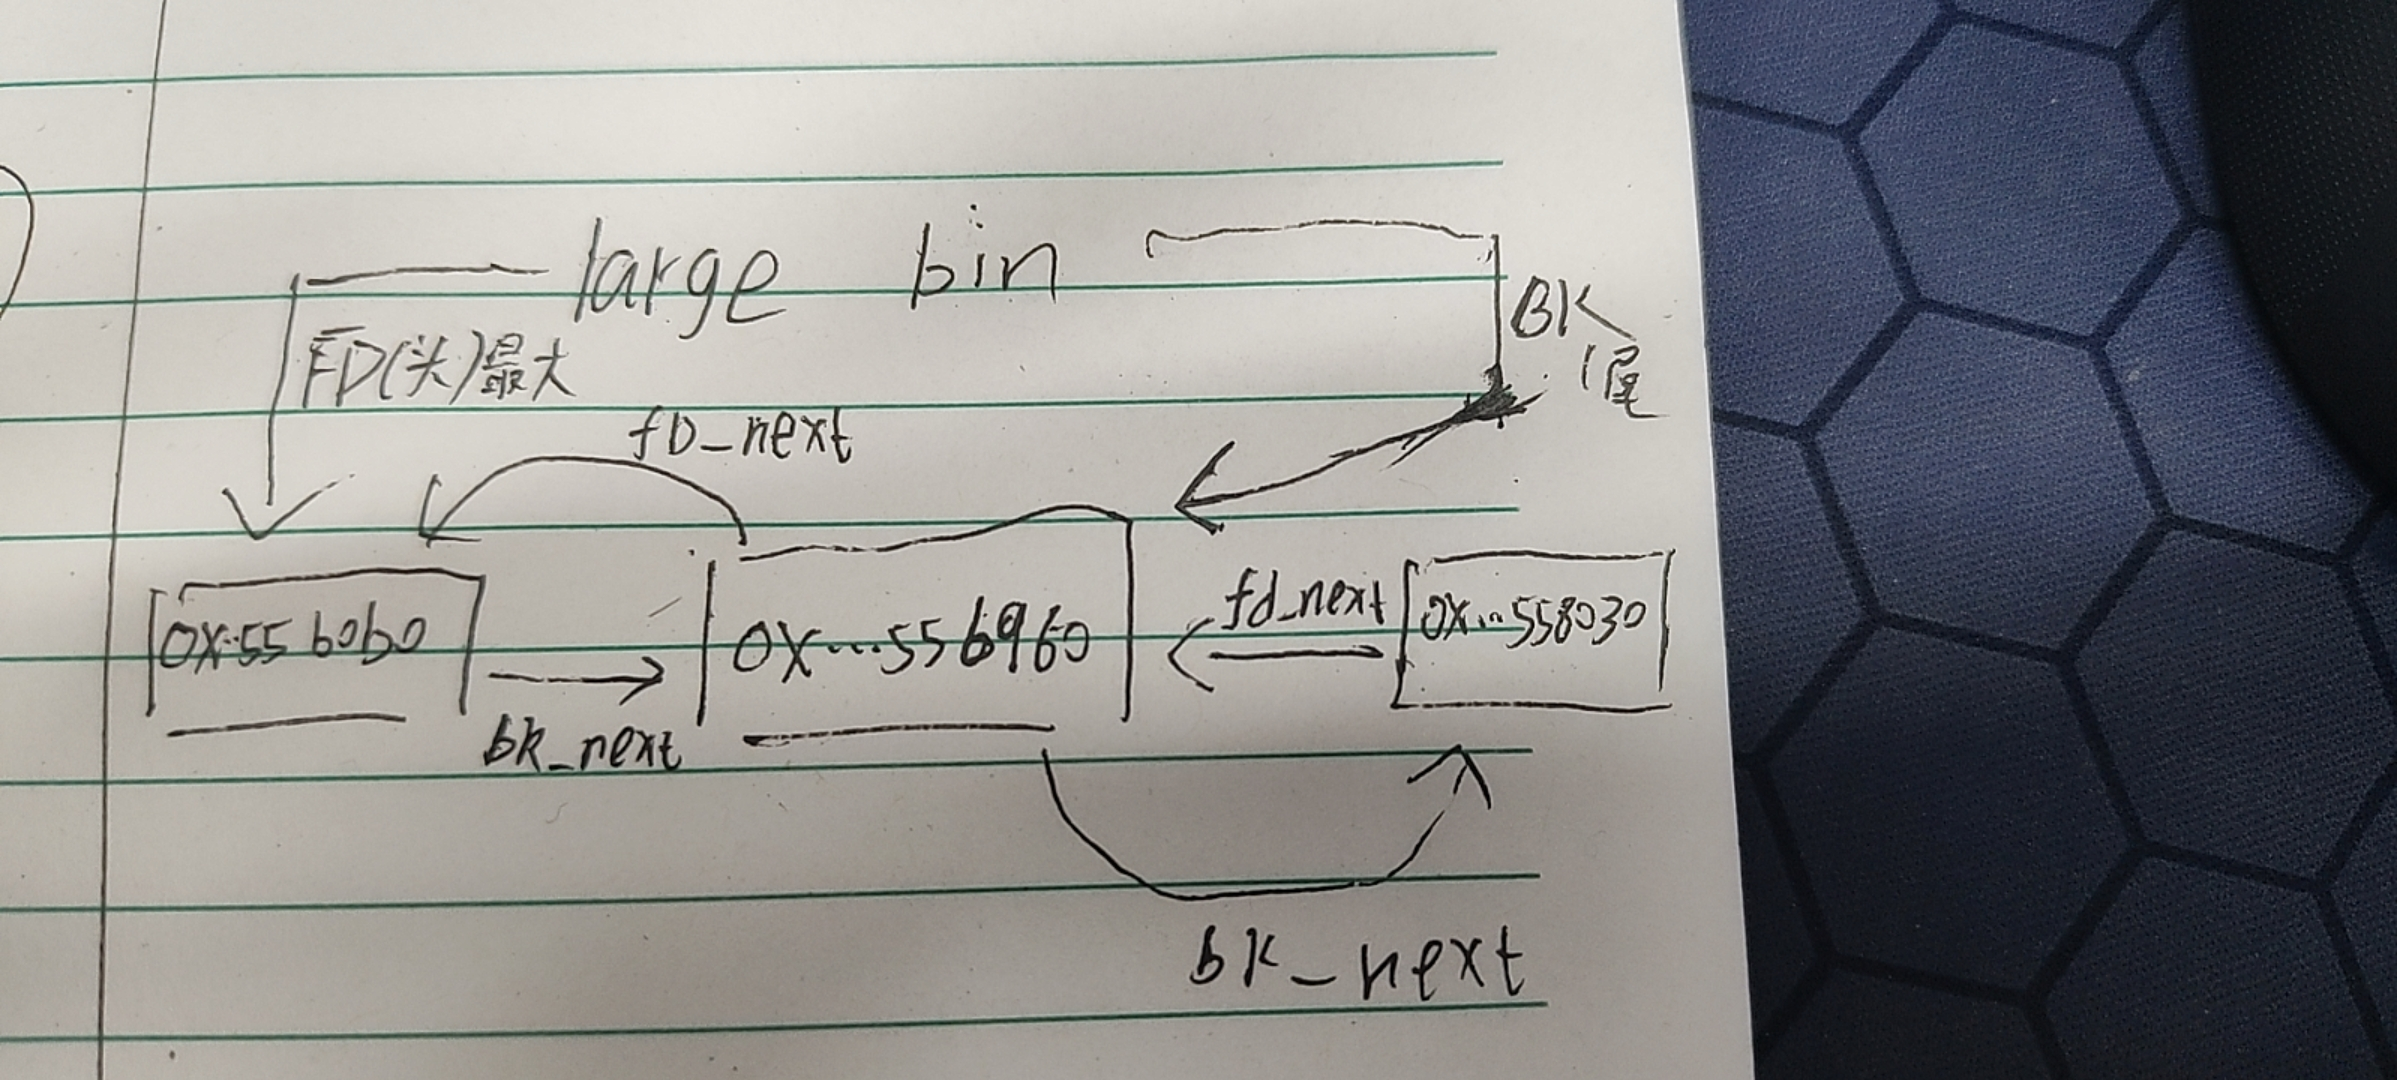 large bin
BK
FD(头)最大
尾
fD_next
fd_next
0X..55 6060
0X...556960
0X...558030
bk_next
bk_next